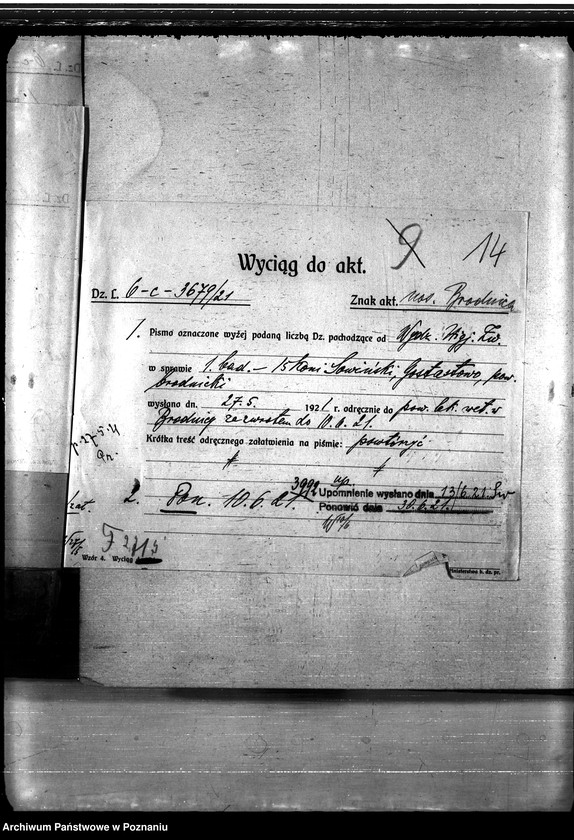 9 14
Wyciąg do akt.
Dz. L. 6-c-3679/21
Znak akt. nos. Brodnica
1. Pismo oznaczone wyżej podaną liczbą Dz. pachodzące od Wydz. Hyj. Zw.
w sprawie 1. bad. - 15 koni Sowiński, pow.
brodnicki
wysłano dn. 27.5. 1921 r. odręcznie do pow. lek. wet. w
Brodnicy ze zwrotem do 10.6.21.
Krótka treść odręcznego załatwienia na piśmie:
27.5.21
2. 10.6.21. 3992 Upomnienie wysłano dnia 13/6.21.
Ponowić dnia 30.6.21.
Wzór 4. Wyciąg
Archiwum Państwowe w Poznaniu